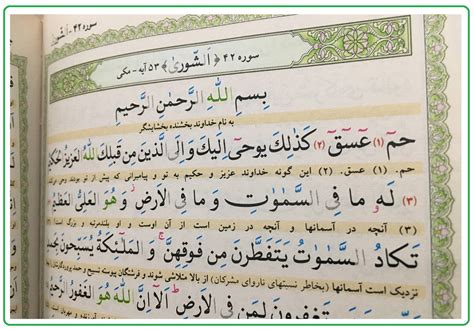 سوره ۴۲ - الشوری
سوره ۴۲ ﴿ اَلشّوریٰ ﴾ ۵۳ آیه - مکی
بِسمِ اللهِ الرَّحمٰنِ الرَّحیمِ
به نام خداوند بخشنده بخشایشگر
حمٓ (۱) عٓسٓقٓ (۲) کَذٰلِکَ یوحیٓ اِلَیکَ وَ اِلَی الَّذینَ مِن قَبلِکَ اللهُ العَزیزُ الحَکیمُ
حم. (۱) عسق. (۲) این گونه خداوند عزیز و حکیم به تو و پیامبرانی که پیش از تو بودند وحی
(۳) لَه ما فِی السَّمٰوٰتِ وَ ما فِی الاَرضِ وَ هُوَ العَلِیُّ العَظیمُ
(۳) آنچه در آسمانها و آنچه در زمین است از آن اوست و او بلندمرتبه و بزرگ است!
تَکادُ السَّمٰوٰتُ یَتَفَطَّرنَ مِن فَوقِهِنَّ وَ المَلٰٓئِکَةُ یُسَبِّحونَ بِحَمدِ
نزدیک است آسمانها (بخاطر نسبتهای ناروای مشرکان) از بالا متلاشی شوند و فرشتگان پیوسته تسبیح و حمد
فِرونَ لِمَن فِی الاَرضِ اَلآ اِنَّ اللهَ هُوَ الغَفورُ